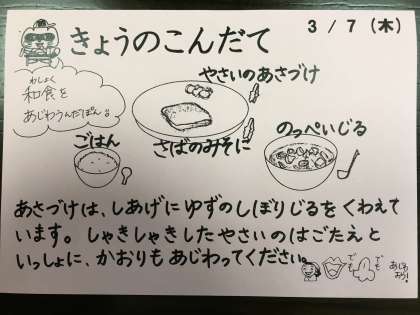 きょうのこんだて
3/7(木)
わしょく
和食を
あじわうんだぽん。
やさいのあさづけ
ごはん
さばのみそに
のっぺいじる
あさづけは、しあげにゆずのしぼりじるをくわえて
います。しゃきしゃきしたやさいのはごたえと
いっしょに、かおりもあじわってください。
でも
でも
あじわ
おう!